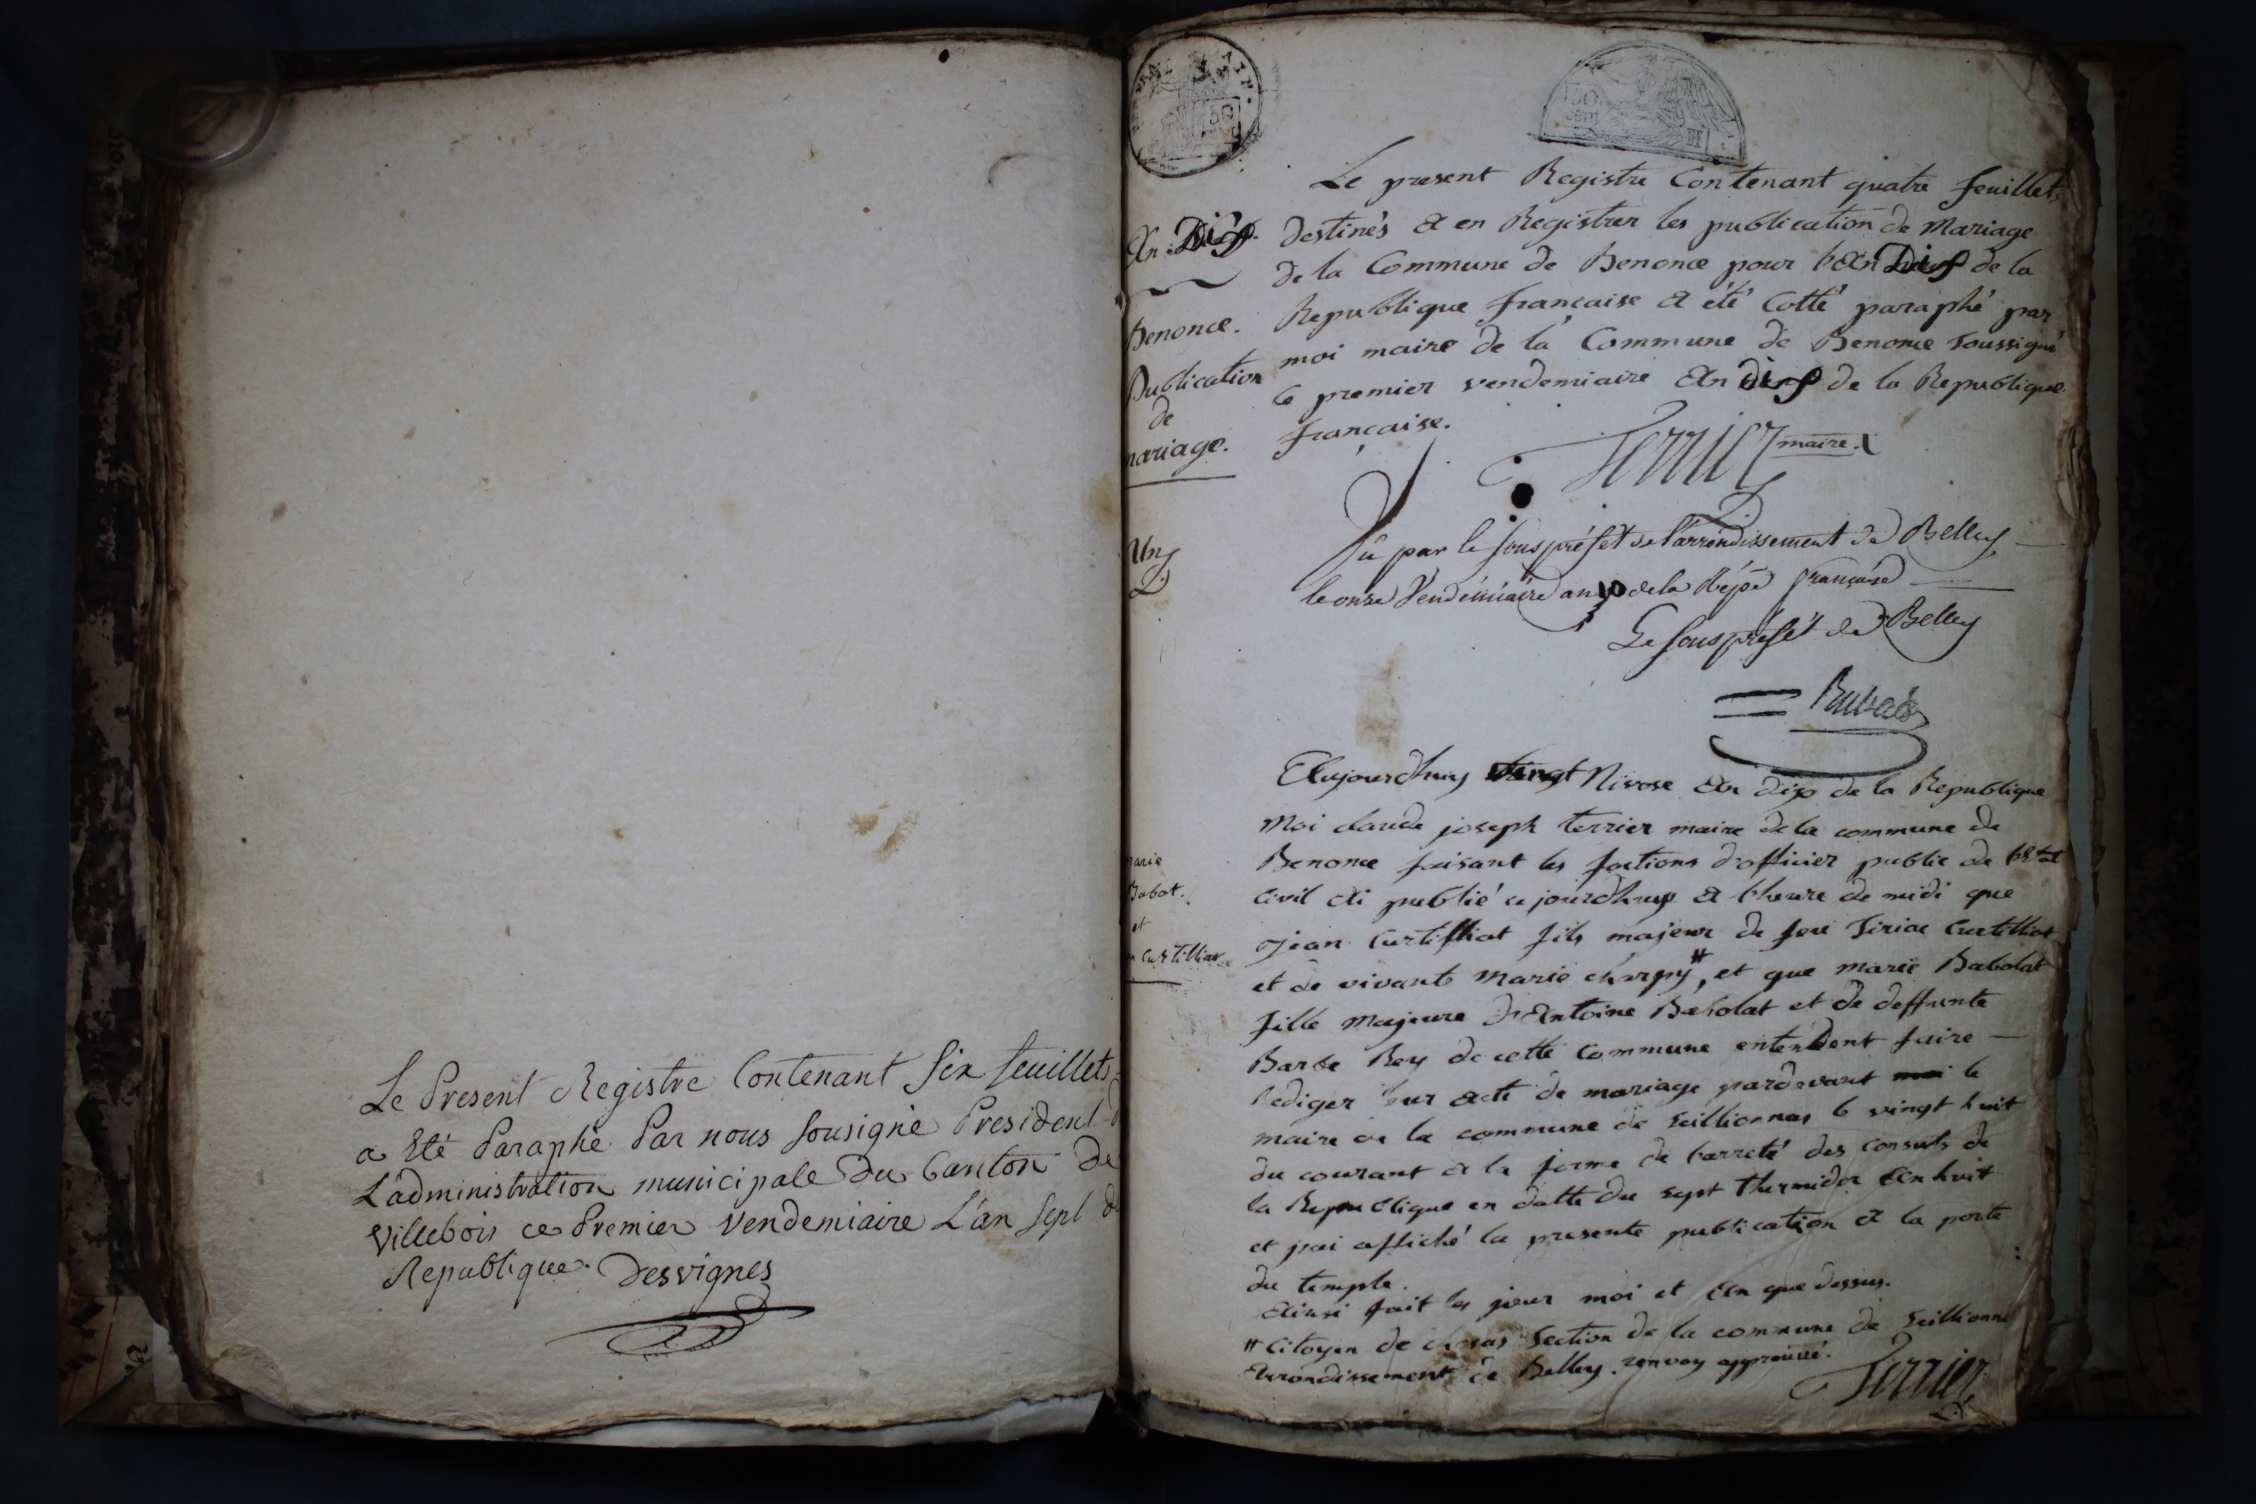 Le Present Registre Contenant Six feuillets
a Eté Paraphé Par nous Sousigné President
L'administration municipale Du Canton De
Villebois ce Premier Vendemiaire L'an Sept
Republique. Desvignes
50
50
Le present Registre Contenant quatre feuillets
An Dix. destinés a en Registrer les publication de Mariage
de la Commune de Benonce pour l'An Dix de la
Benonce. Republique française a été Cotté paraphé par
Publication moi maire de la Commune de Benonce soussigné
de le premier vendemiaire An dix de la Republique
mariage. française.
Terrier maire.
Un
Vû par le sous préfet de l'arrondissement de Belley
le onze Vendémiaire an de la Répe française
Le sous préfet de Belley
Aujourdhuy vingt Nivose An dix de la Republique
Moi claude joseph terrier maire de la commune de
Benonce faisant les foctions d'officier public de l'Etat
Civil ai publié ce jourdhuy a l'heure de midi que
marie
Babot.
et
Curtilliat
Jean Curtilliat fils majeur de feu Curtilliat
et de vivante marie charpy #, et que marie Babolat
fille majeure d'Antoine Babolat et de deffunte
Barbe Rey de cette Commune entendent faire
Rediger leur acte de mariage pardevant le
maire de la commune de Seillionnas le vingt huit
du courant a la forme de l'arreté des consuls de
la Republique en datte du sept thermidor An huit
et j'ai affiché la presente publication a la porte
du temple.
Ainsi fait les jour moi et An que dessus.
# Citoyen de section de la commune de Seillionna
Arrondissement de Belley. renvoy approuvé.
Terrier